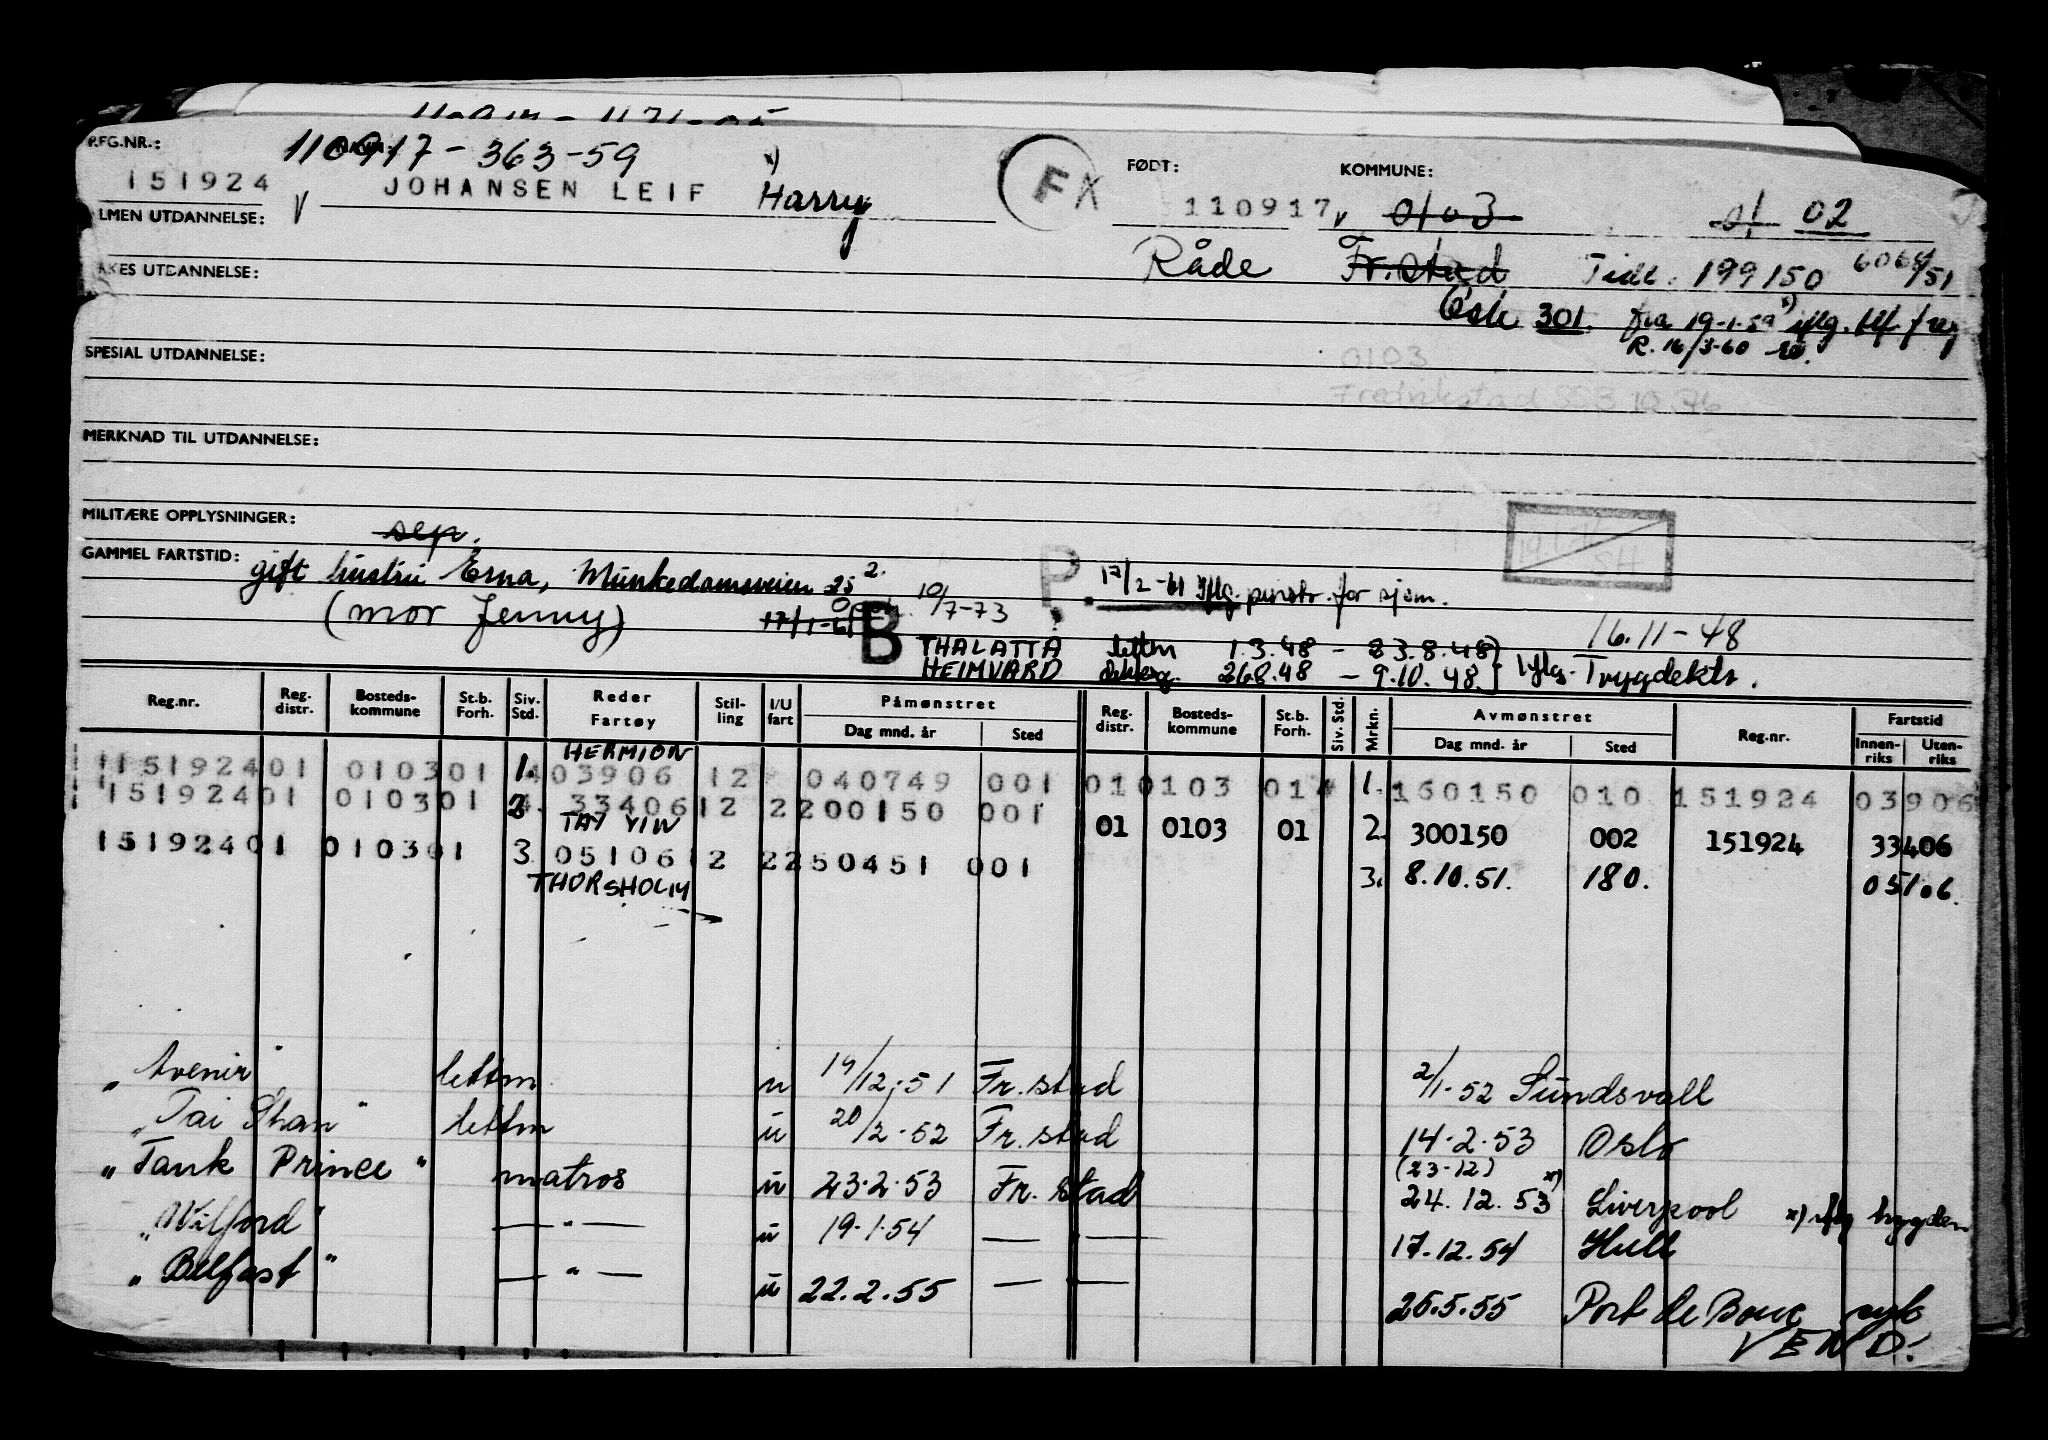 REG.NR.: 110917-363-59 x) FX FØDT: KOMMUNE:
151924 V JOHANSEN LEIF Harry 110917 v 0103 01 02
LMEN UTDANNELSE:
Råde Fr.stad Tidl. 199150 6068/51
AKES UTDANNELSE:
Oslo 301. fra 19-1-59 x) iflg. tlf. f reg
R. 16/3-60
SPESIAL UTDANNELSE: 0103
Fredrikstad
MERKNAD TIL UTDANNELSE:
MILITÆRE OPPLYSNINGER: sep.
GAMMEL FARTSTID: gift hustru Erna, Munkedamsveien 25 2. P. 17/2-61 Iflg. penstr. for sjøm.
(mor Jenny) 17/1-61 B 10/7-73
16.11-48
THALATTA lettm 1.3.48 - 23.8.48)
HEIMVARD 26.8.48 - 9.10.48.} Iflg. Trygdektr.
Reg.nr. Reg. distr. Bosteds-kommune St.b. Forh. Siv. Std. Reder Fartøy Stil-ling I/U fart Påmønstret Dag mnd. år Sted Reg. distr. Bosteds-kommune St.b. Forh. Siv. Std. Mrkn. Avmønstret Dag mnd. år Sted Reg.nr. Fartstid Innen-riks Uten-riks
HERMION
151924 01 0103 01 1. 403906 12 040749 001 01 0103 01 1. 160150 010 151924 03906
151924 01 0103 01 2. 33406 12 2 200150 001
TAI YIN 01 0103 01 2. 300150 002 151924 33406
151924 01 0103 01 3 05106 12 2 250451 001
THORSHOLM 3. 8.10.51. 180. 05106.
"Avenir" lettm u 14/12.51 Fr.stad 2/1.52 Sundsvall
"Tai Shan" lettm u 20/2.52 Fr.stad 14.2.53 Oslo
(23-12)
"Tank Prince" matros u 23.2.53 Fr. stad 24.12.53 x) Liverpool x) iflg bygden
"Wilford" — " — u 19.1.54 — " — 17.12.54 Hull
"Belfast" — " — u 22.2.55 — " — 26.5.55 Port de Bouc syk
VEND!